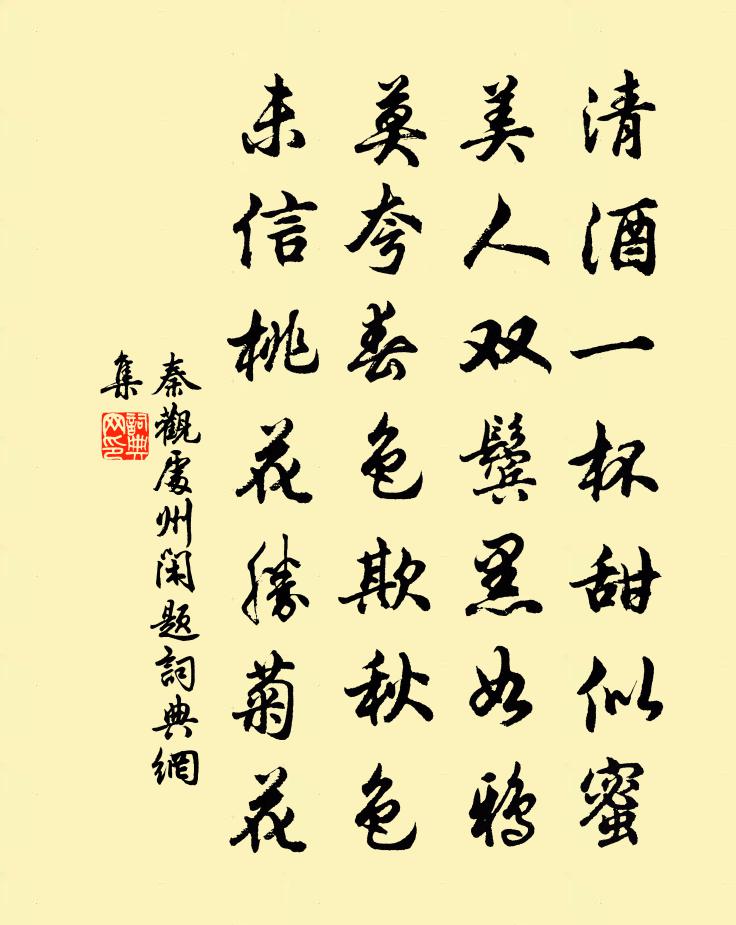 清酒一杯甜似蜜
美人双鬓黑如鸦
莫夸春色欺秋色
未信桃花勝菊花
秦觀處州闲题詞典網
集
詞典网印